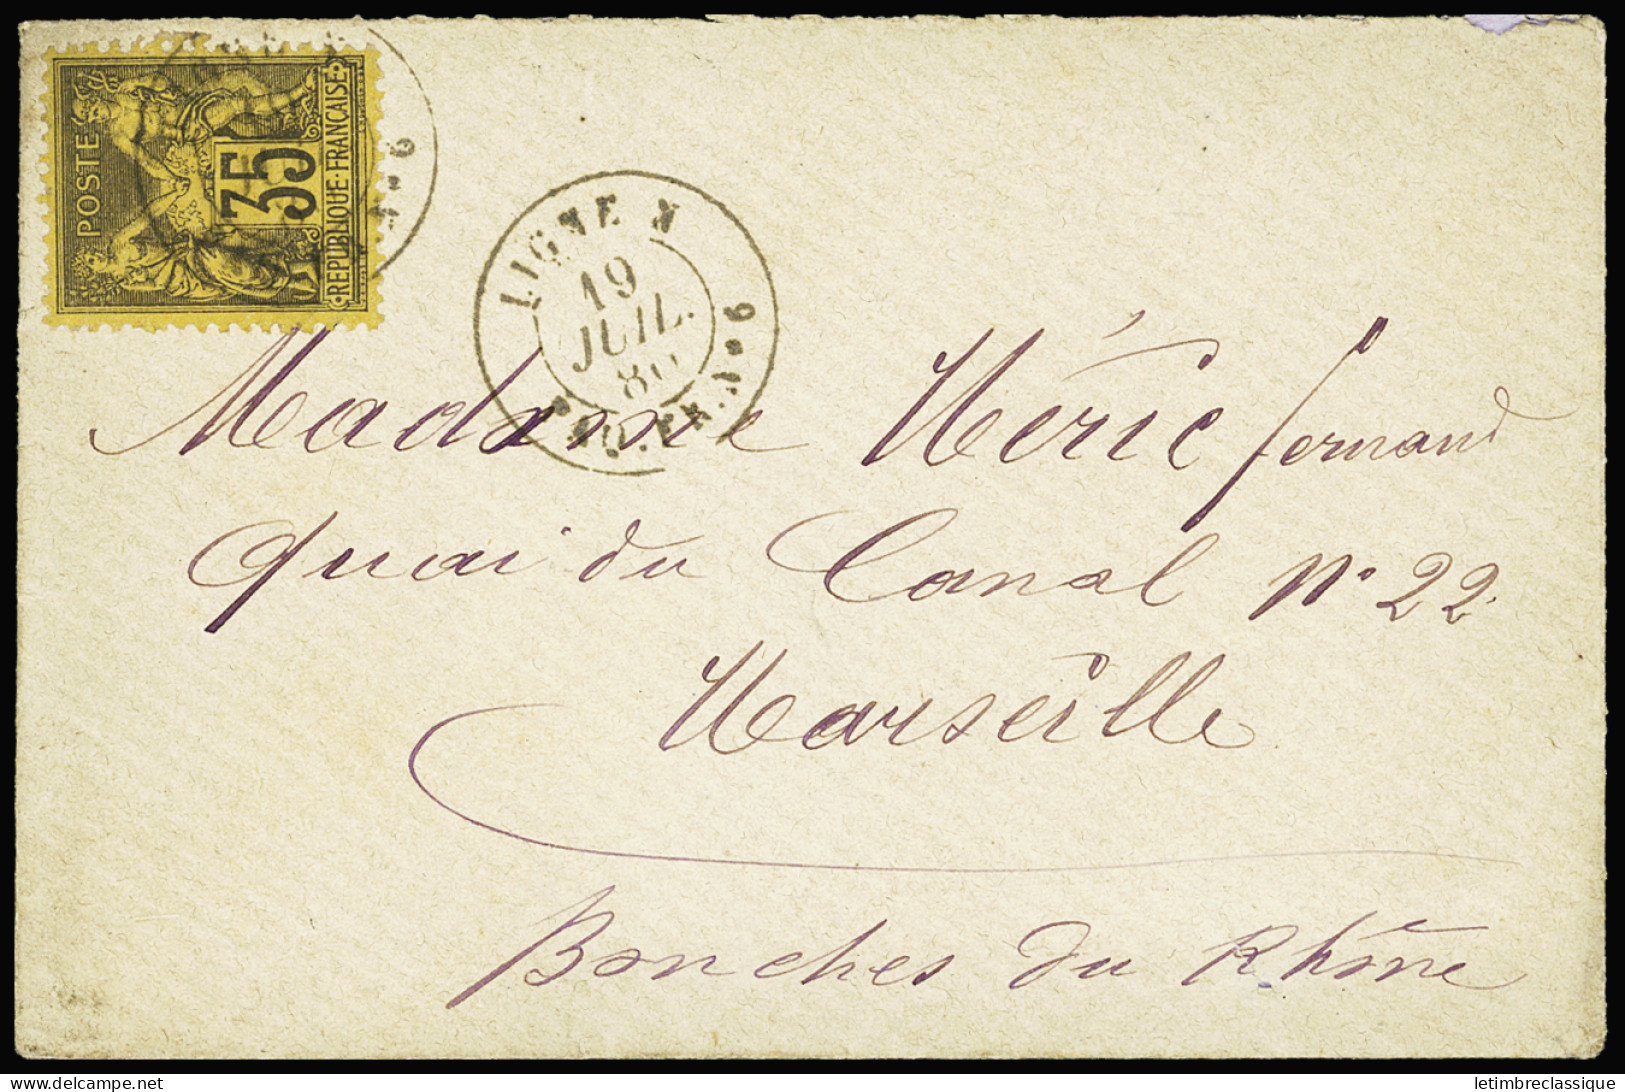 POSTE
35
REPUBLIQUE·FRANÇAISE
N°6
LIGNE N
19
JUIL.
80
PAQ.FR.N°6
Madame Méric fernand
Quai du Canal N° 22
Marseille
Bouches du Rhône
letimbreclassique